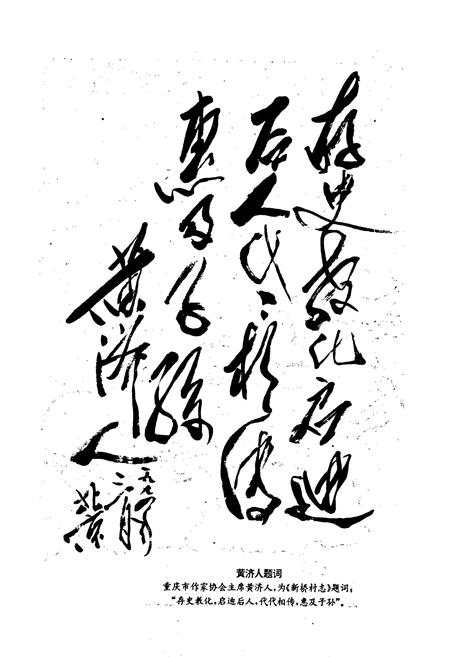 存史教化启迪
后人代々相传
惠及子孙
黄济人
黄济人题词
重庆市作家协会主席黄济人,为《新桥村志》题词:
“存史教化,启迪后人,代代相传,惠及子孙”。